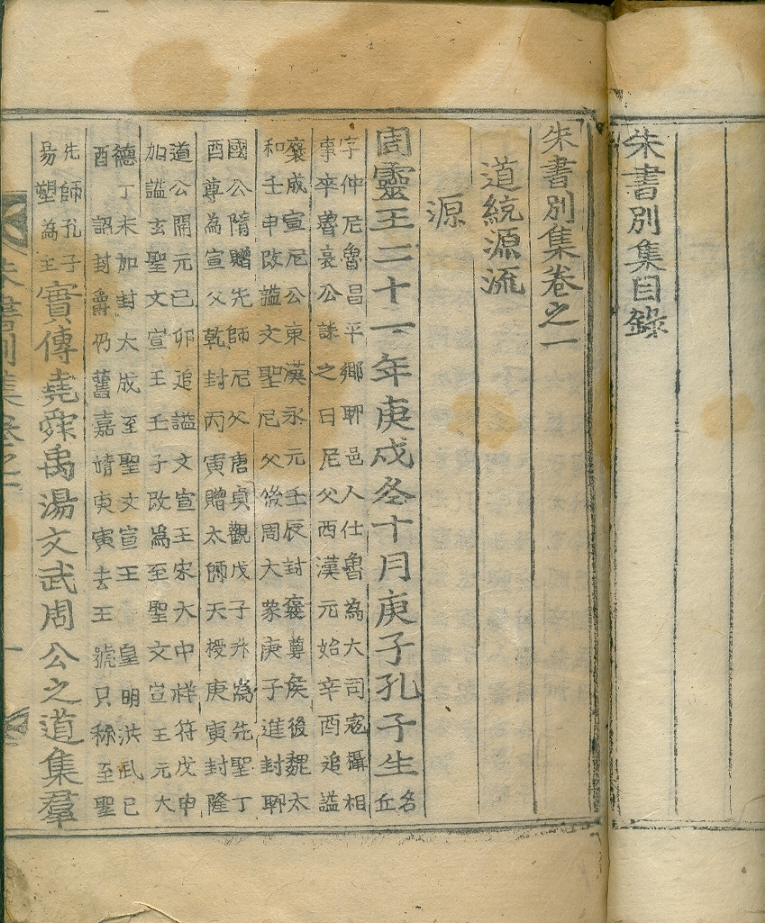 朱書別集目錄
朱書別集卷之一
道統源流
源
周靈王二十一年庚戌冬十月庚子孔子生名丘
字仲尼魯昌平鄉聊邑人仕魯為大司寇攝相
事卒魯哀公誄之曰尼父西漢元始辛酉追謚
褒成宣尼公東漢永元壬辰封褒尊侯後魏太
和壬申改謚文聖尼父後周大象庚子進封鄒
國公隋贈先師尼父唐貞觀戊子升為先聖丁
酉尊為宣父乾封丙寅贈太師天授庚寅封隆
道公開元己卯追謚文宣王宋大中祥符戊申
加謚玄聖文宣王壬子改為至聖文宣王元大
德丁未加封大成至聖文宣王 皇明洪武己
酉 詔封爵仍舊嘉靖庚寅去王號只稱至聖
先師孔子
易塑為主
實傳堯舜禹湯文武周公之道集羣
朱書別集卷之一
一